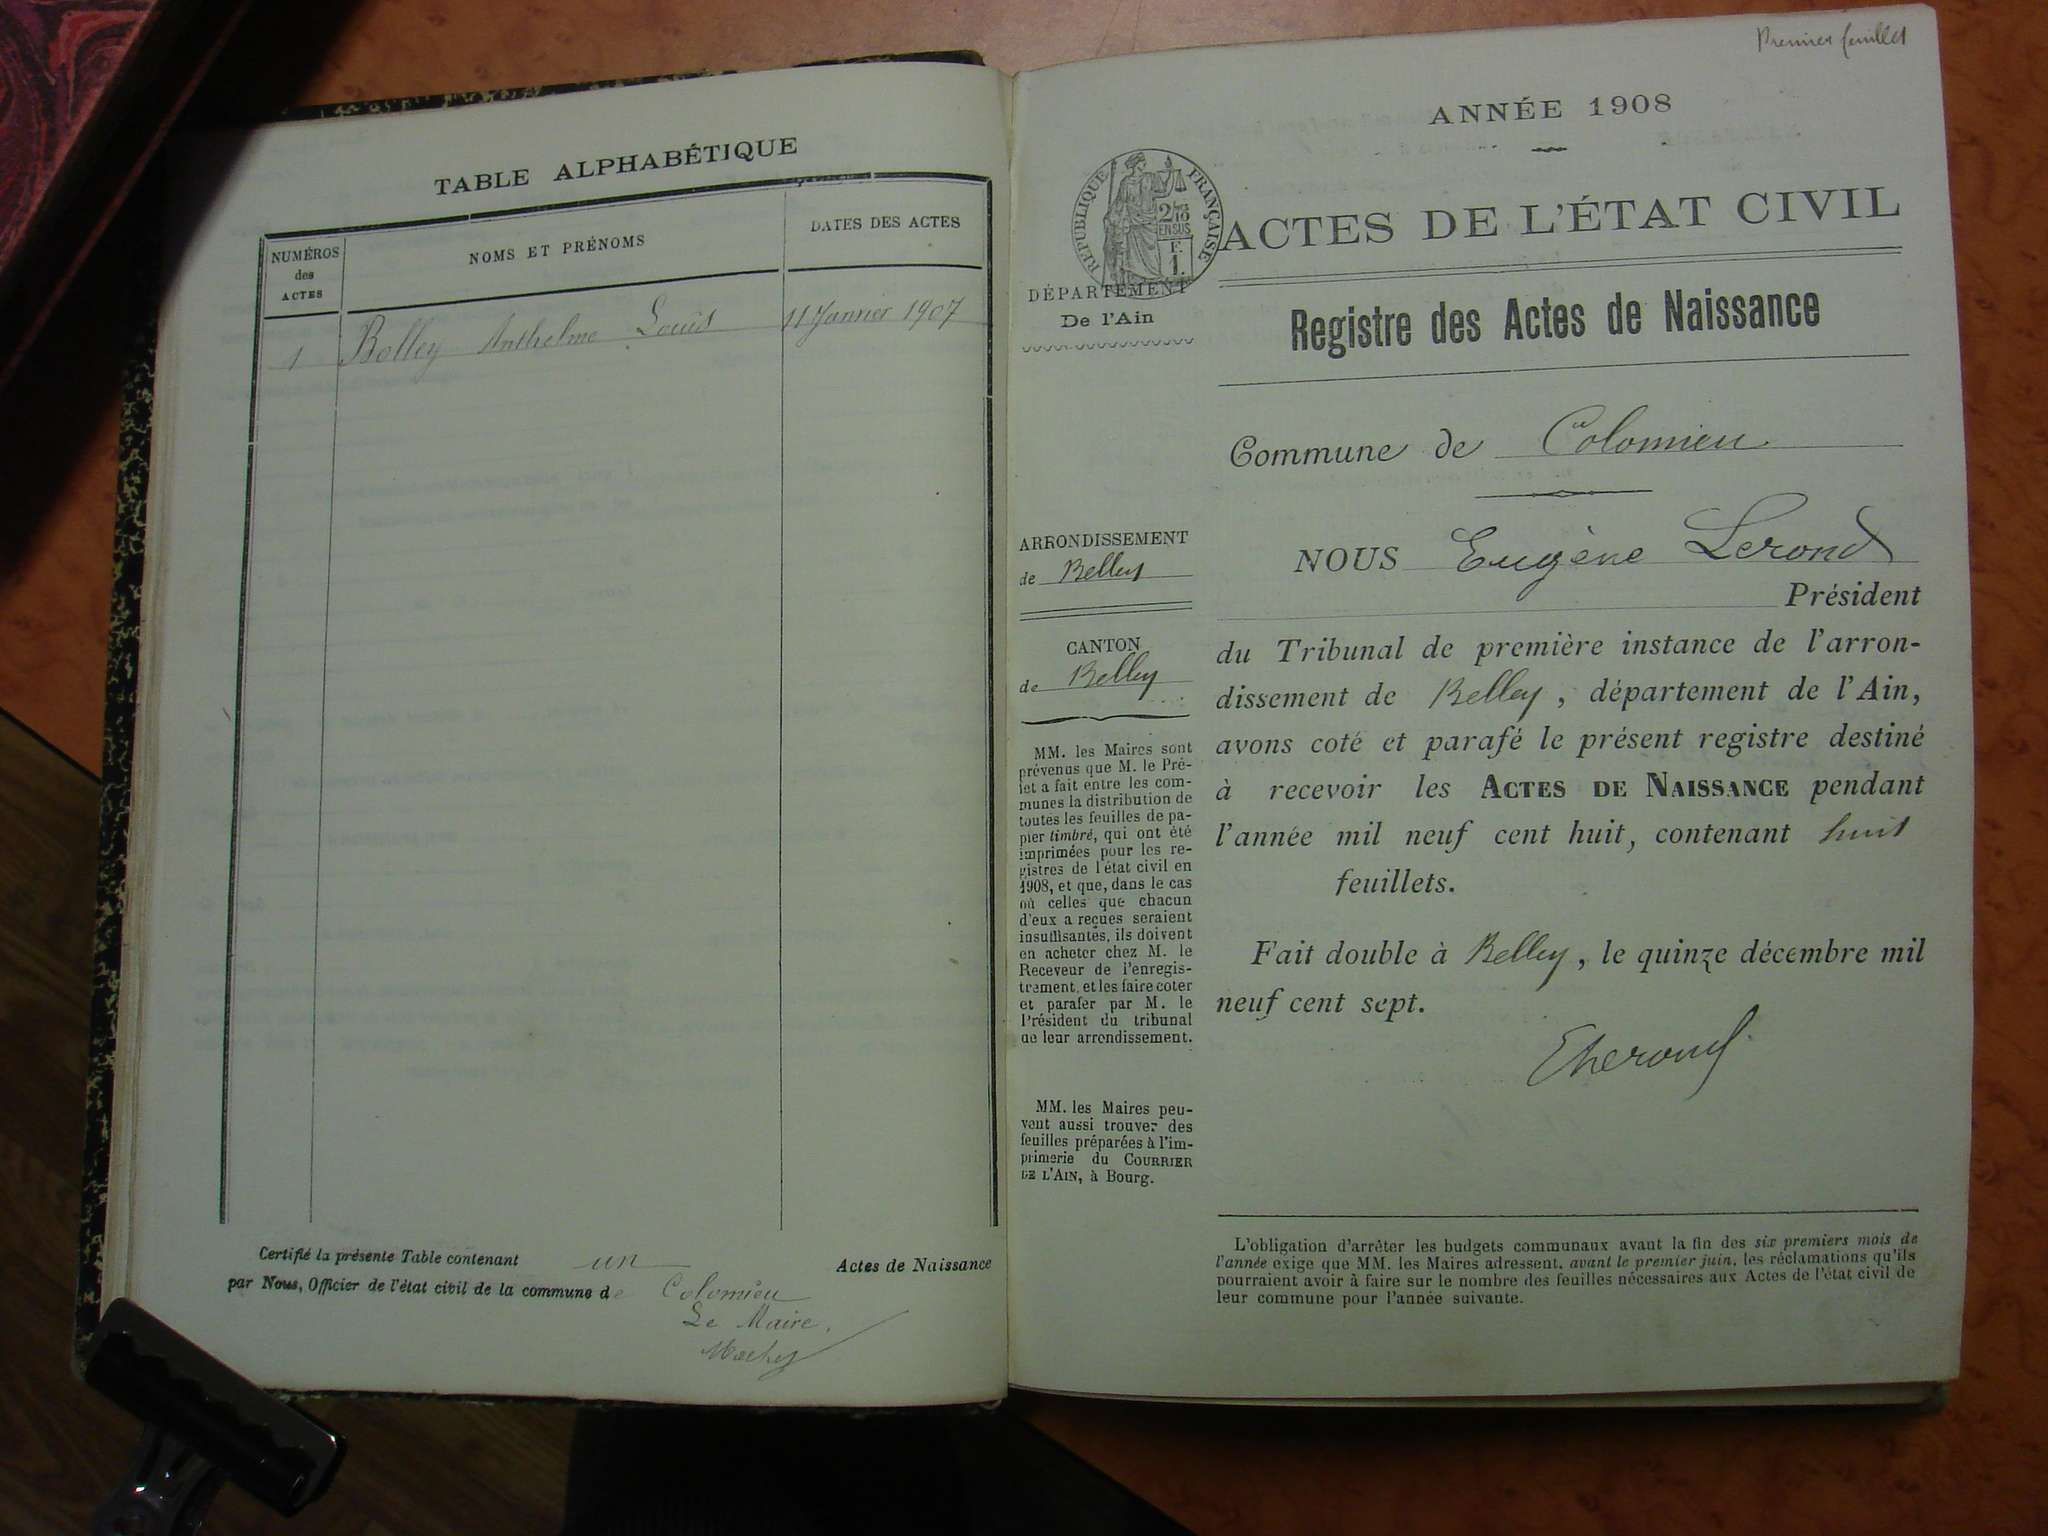 TABLE ALPHABÉTIQUE
NUMÉROS
des
ACTES
NOMS ET PRÉNOMS
DATES DES ACTES
1 Bolley Anthelme Louis 11 Janvier 1907
Certifié la présente Table contenant un Actes de Naissance
par Nous, Officier de l'état civil de la commune de Colomieu
Le Maire,
Premier feuillet
ANNÉE 1908
RÉPUBLIQUE FRANÇAISE
2/10
EN SUS
F.
1.
ACTES DE L'ÉTAT CIVIL
DÉPARTEMENT
De l'Ain
Registre des Actes de Naissance
Commune de Colomieu
ARRONDISSEMENT
de Belley
CANTON
de Belley
MM. les Maires sont
prévenus que M. le Pré-
fet a fait entre les com-
munes la distribution de
toutes les feuilles de pa-
pier timbré, qui ont été
imprimées pour les re-
gistres de l'état civil en
1908, et que, dans le cas
où celles que chacun
d'eux a reçues seraient
insuffisantes, ils doivent
en acheter chez M. le
Receveur de l'enregis-
trement, et les faire coter
et parafer par M. le
Président du tribunal
de leur arrondissement.
MM. les Maires peu-
vent aussi trouver des
feuilles préparées à l'im-
primerie du COURRIER
DE L'AIN, à Bourg.
NOUS Eugène Lerond
Président
du Tribunal de première instance de l'arron-
dissement de Belley, département de l'Ain,
avons coté et parafé le présent registre destiné
à recevoir les ACTES DE NAISSANCE pendant
l'année mil neuf cent huit, contenant huit
feuillets.
Fait double à Belley, le quinze décembre mil
neuf cent sept.
L'obligation d'arrêter les budgets communaux avant la fin des six premiers mois de
l'année exige que MM. les Maires adressent, avant le premier juin, les réclamations qu'ils
pourraient avoir à faire sur le nombre des feuilles nécessaires aux Actes de l'état civil de
leur commune pour l'année suivante.